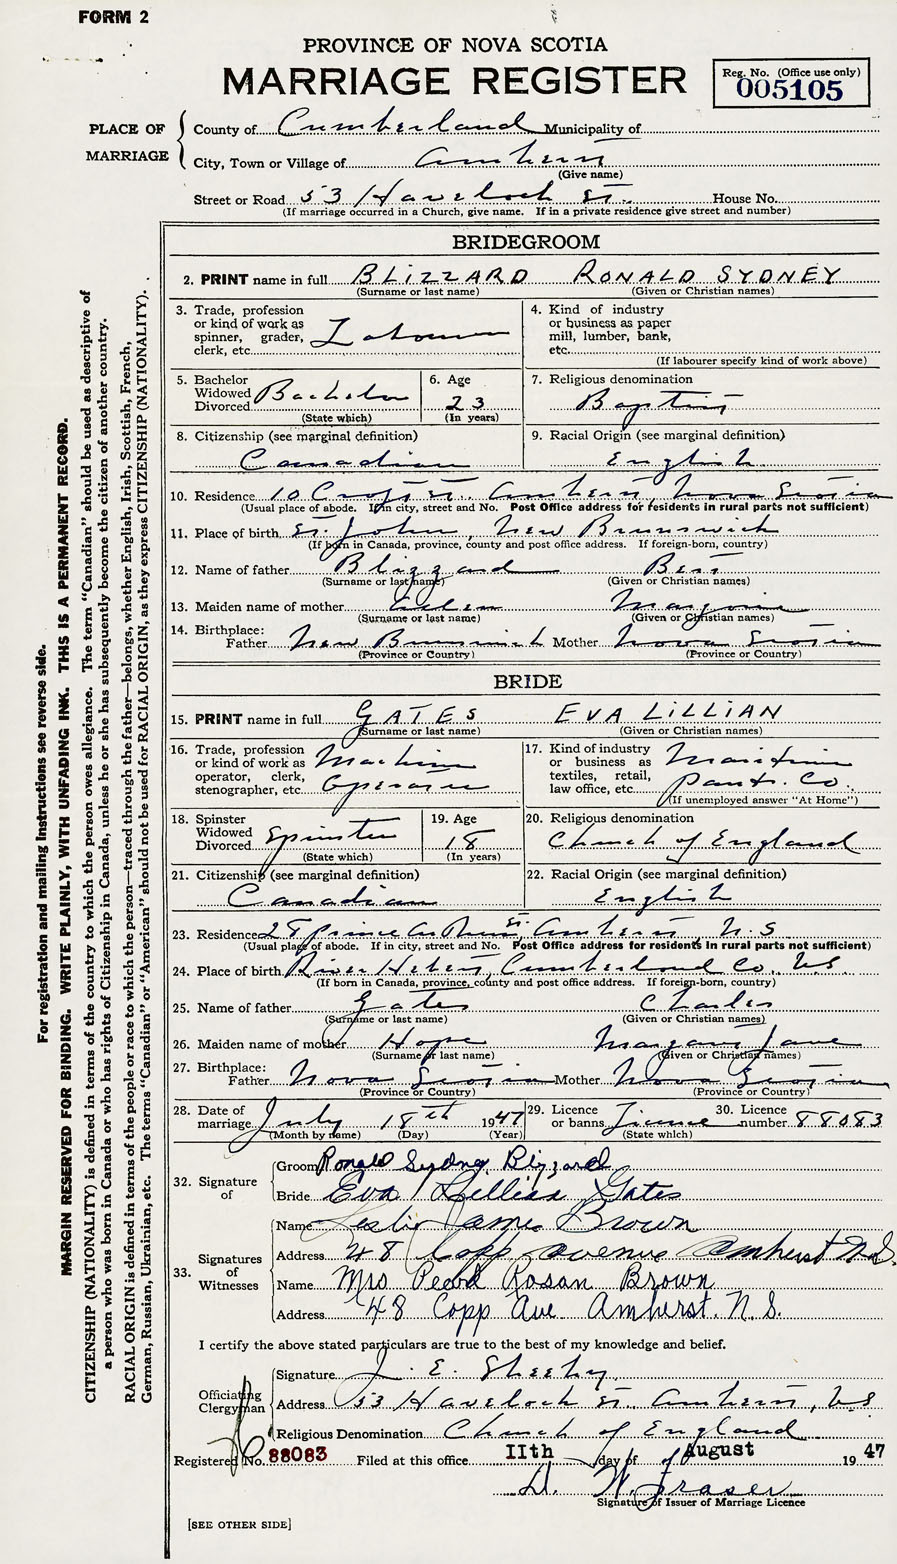 FORM 2
PROVINCE OF NOVA SCOTIA
MARRIAGE REGISTER
Reg. No. (Office use only)
005105
PLACE OF MARRIAGE
County of Cumberland Municipality of
City, Town or Village of Amherst
(Give name)
Street or Road 53 Havelock St. House No.
(If marriage occurred in a Church, give name. If in a private residence give street and number)
BRIDEGROOM
2. PRINT name in full BLIZZARD RONALD SYDNEY
(Surname or last name) (Given or Christian names)
3. Trade, profession or kind of work as spinner, grader, clerk, etc. Labourer
4. Kind of industry or business as paper mill, lumber, bank, etc.
(If labourer specify kind of work above)
5. Bachelor Widowed Divorced Bachelor
(State which)
6. Age 23
(In years)
7. Religious denomination
Baptist
8. Citizenship (see marginal definition)
Canadian
9. Racial Origin (see marginal definition)
English
10. Residence 10 Croft St. Amherst, Nova Scotia
(Usual place of abode. If in city, street and No. Post Office address for residents in rural parts not sufficient)
11. Place of birth St. John, New Brunswick
(If born in Canada, province, county and post office address. If foreign-born, country)
12. Name of father Blizzard
(Surname or last name) (Given or Christian names)
13. Maiden name of mother Marjorie
(Surname or last name) (Given or Christian names)
14. Birthplace:
Father New Brunswick Mother Nova Scotia
(Province or Country) (Province or Country)
BRIDE
15. PRINT name in full GATES EVA LILLIAN
(Surname or last name) (Given or Christian names)
16. Trade, profession or kind of work as operator, clerk, stenographer, etc. Machine Operator
17. Kind of industry or business as textiles, retail, law office, etc. Maritime Pant. Co.
(If unemployed answer "At Home")
18. Spinster Widowed Divorced Spinster
(State which)
19. Age 18
(In years)
20. Religious denomination
Church of England
21. Citizenship (see marginal definition)
Canadian
22. Racial Origin (see marginal definition)
English
23. Residence Prince Arthur St. Amherst, N.S
(Usual place of abode. If in city, street and No. Post Office address for residents in rural parts not sufficient)
24. Place of birth River Hebert, Cumberland Co. N.S.
(If born in Canada, province, county and post office address. If foreign-born, country)
25. Name of father Gates Charles
(Surname or last name) (Given or Christian names)
26. Maiden name of mother Hope Margaret Jane
(Surname or last name) (Given or Christian names)
27. Birthplace:
Father Nova Scotia Mother Nova Scotia
(Province or Country) (Province or Country)
28. Date of marriage July 18th 1947
(Month by name) (Day) (Year)
29. Licence or banns License
(State which)
30. Licence number 88083
32. Signature of
Groom Ronald Sydney Blizzard
Bride Eva Lillian Gates
33. Signatures of Witnesses
Name Leslie James Brown
Address 48 Copp avenue Amherst N.S.
Name Mrs Pearl Rosan Brown
Address 48 Copp Ave Amherst. N.S.
I certify the above stated particulars are true to the best of my knowledge and belief.
Officiating Clergyman
Signature J. E. Sheehy
Address 53 Havelock St. Amherst, N.S
Religious Denomination Church of England
Registered No. 88083 Filed at this office 11th day of August 1947
D. W. Fraser
Signature of Issuer of Marriage Licence
[SEE OTHER SIDE]
For registration and mailing instructions see reverse side.
MARGIN RESERVED FOR BINDING. WRITE PLAINLY, WITH UNFADING INK. THIS IS A PERMANENT RECORD.
CITIZENSHIP (NATIONALITY) is defined in terms of the country to which the person owes allegiance. The term "Canadian" should be used as descriptive of
a person who was born in Canada or who has rights of Citizenship in Canada, unless he or she has subsequently become the citizen of another country.
RACIAL ORIGIN is defined in terms of the people or race to which the person—traced through the father—belongs, whether English, Irish, Scottish, French,
German, Russian, Ukrainian, etc. The terms "Canadian" or "American" should not be used for RACIAL ORIGIN, as they express CITIZENSHIP (NATIONALITY).